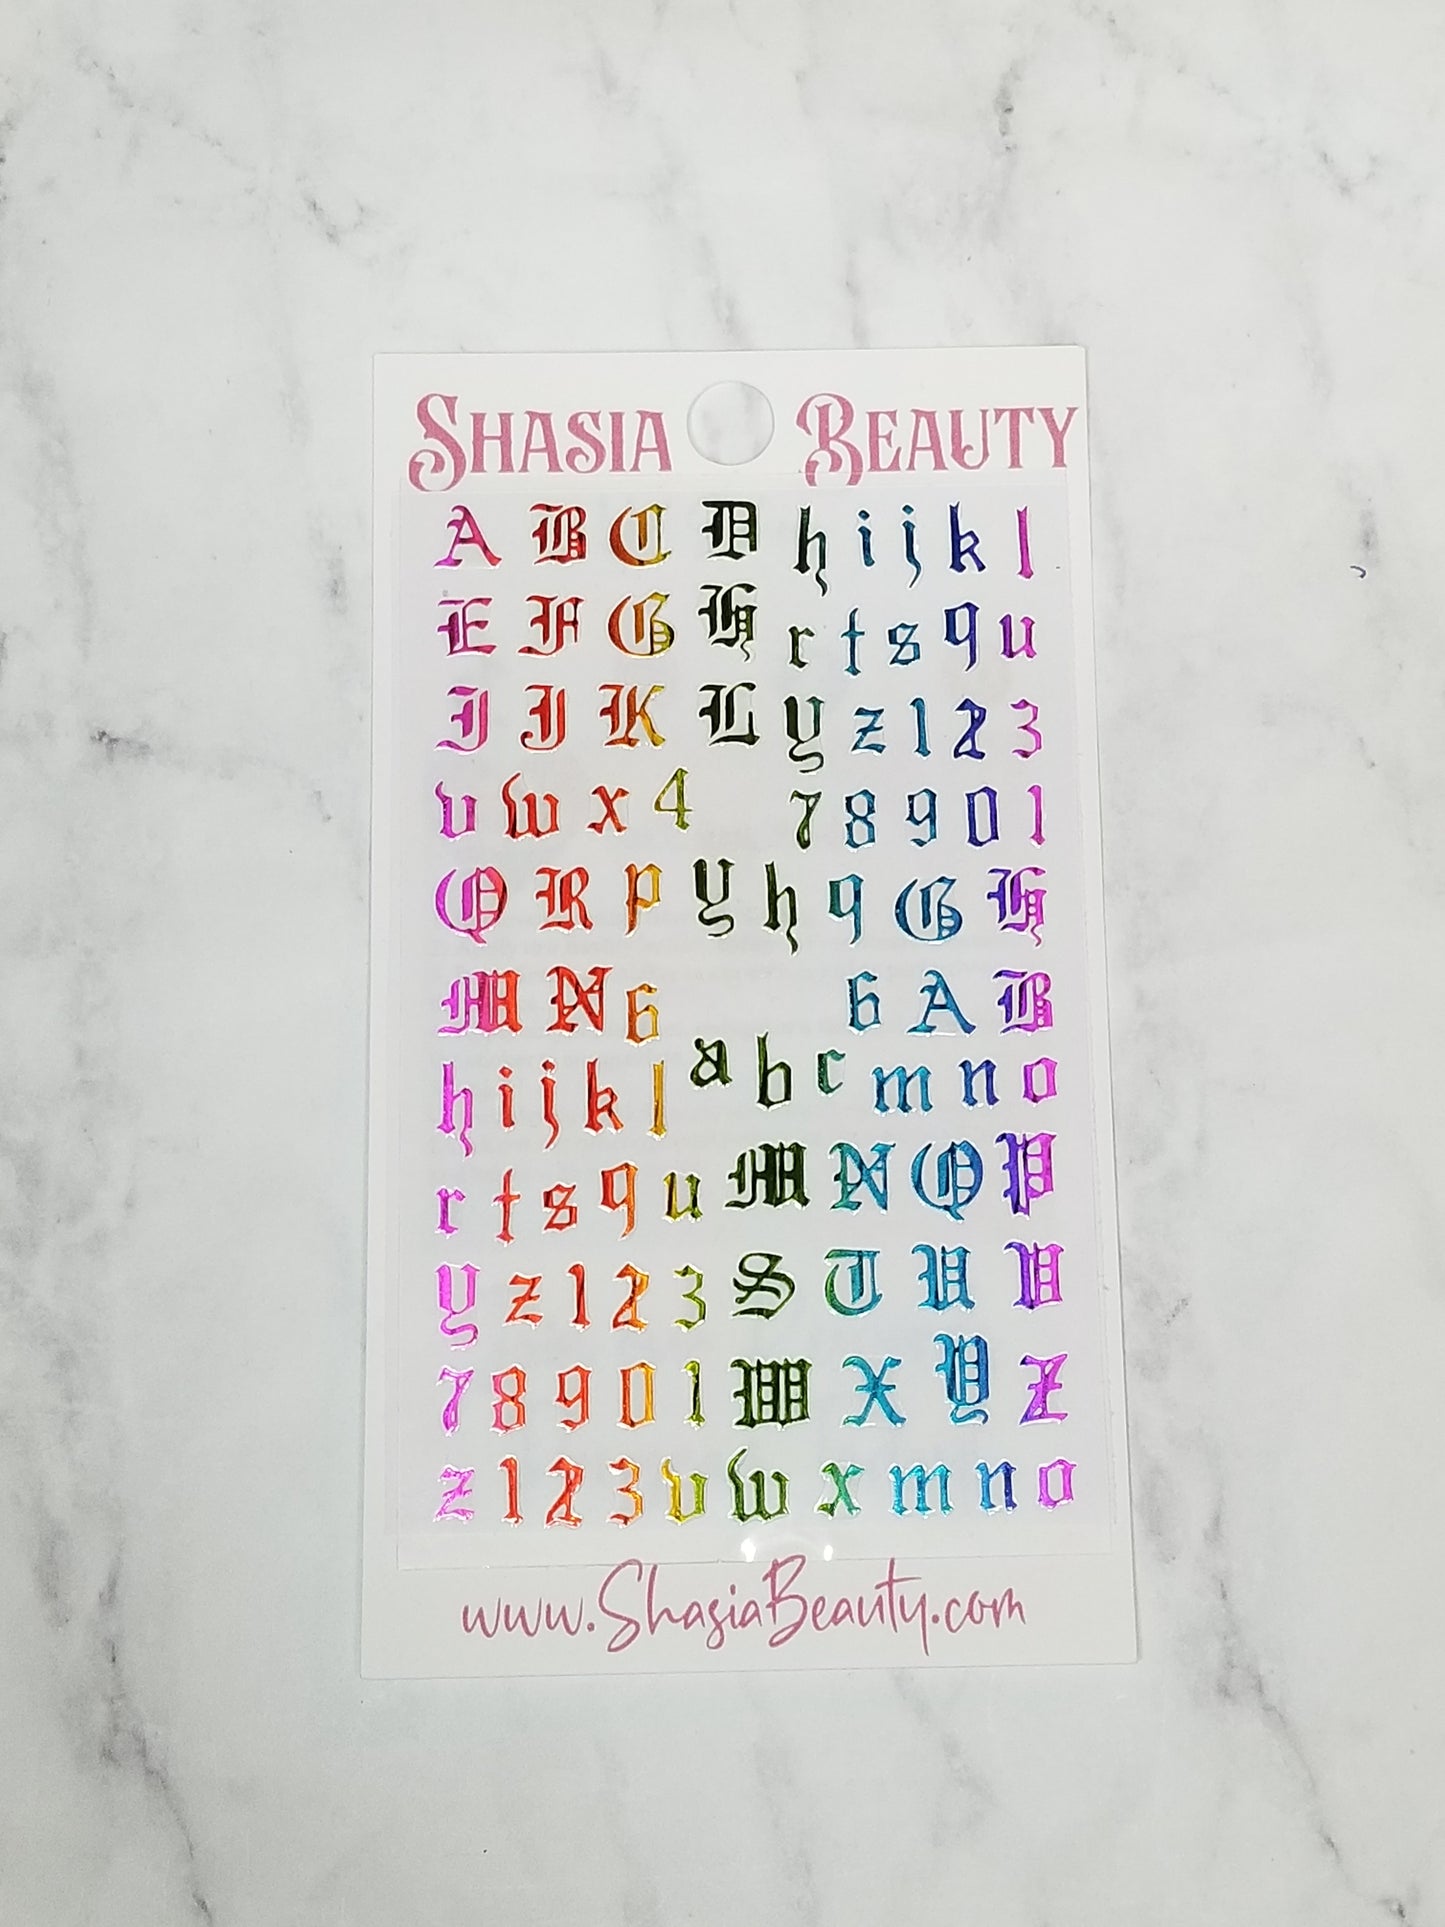 SHASIA BEAUTY
A B C D h i j k l
E F G H r t s q u
I J K L y z 1 2 3
v w x 4 7 8 9 0 1
Q R p y h q G H
M N 6 6 A B
h i j k l a b c m n o
r t s q u M N Q P
y z 1 2 3 S T U V
7 8 9 0 1 W X Y Z
z 1 2 3 v w x m n o
www.ShasiaBeauty.com